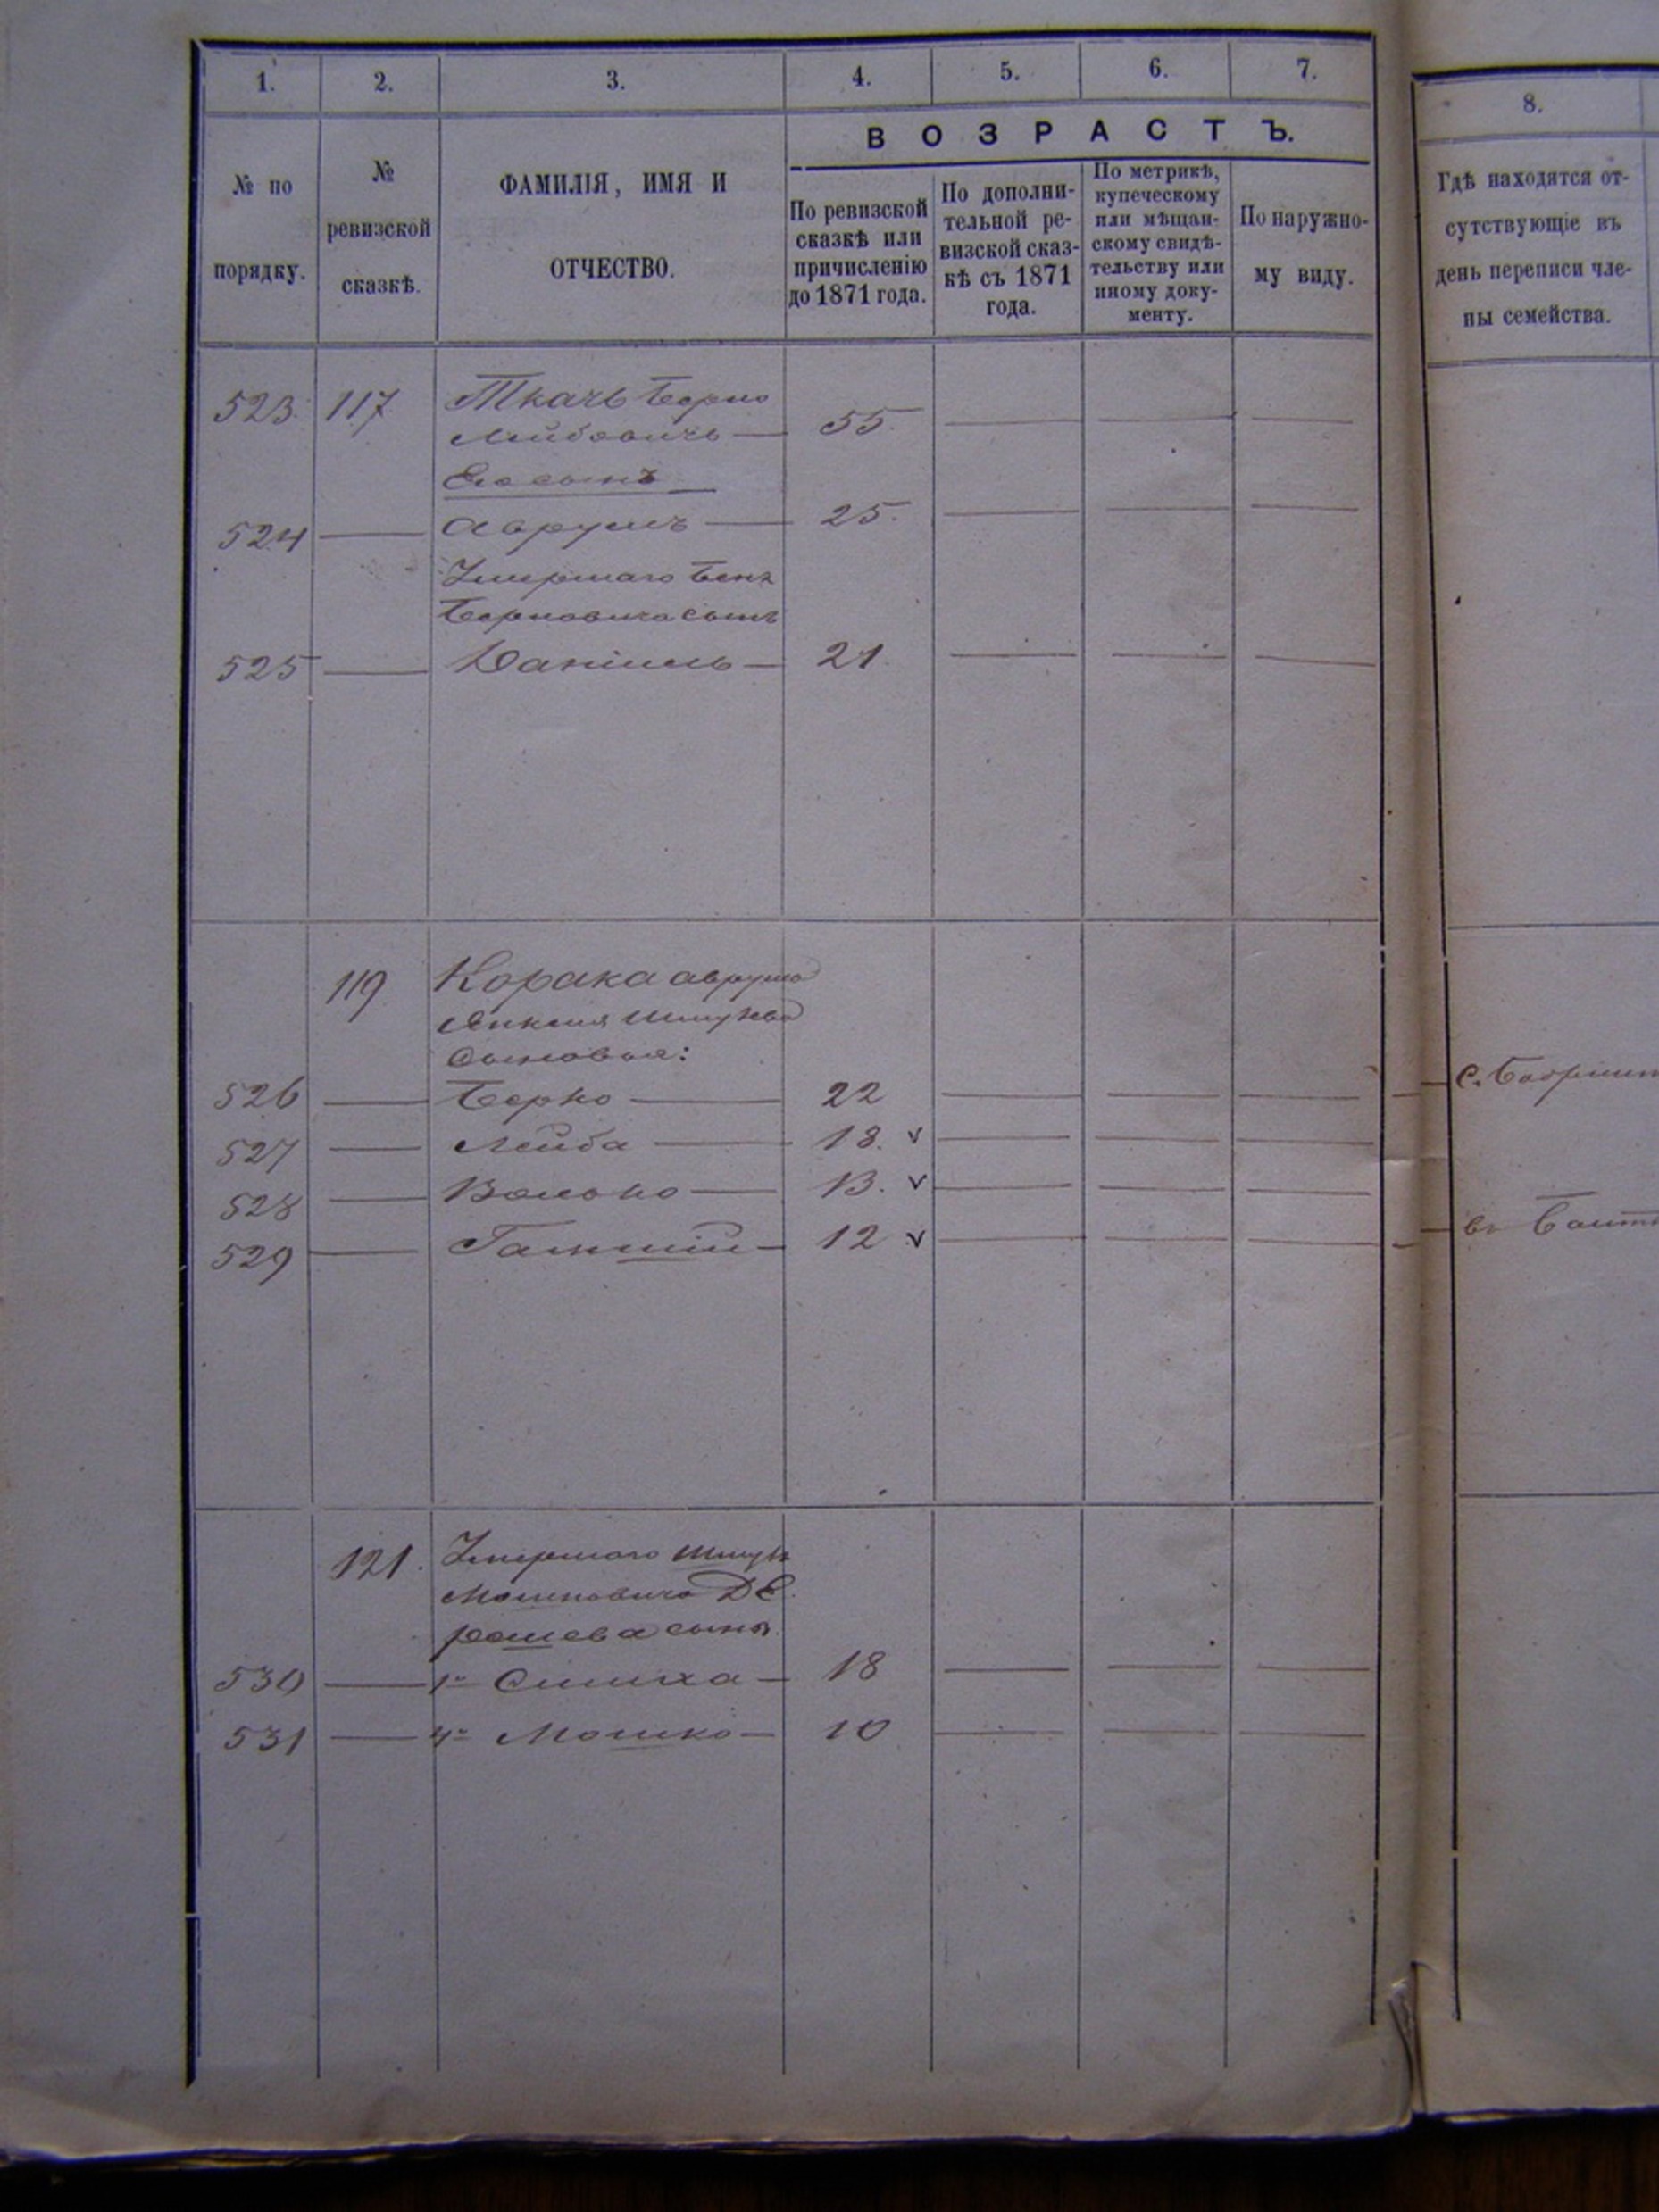 1. 2. 3. 4. 5. 6. 7.
8.
№ по порядку.
№ ревизской сказкѣ.
ФАМИЛІЯ, ИМЯ И
ОТЧЕСТВО.
ВОЗРАСТЪ.
По ревизской
сказкѣ или
причисленію
до 1871 года.
По дополни-
тельной ре-
визской сказ-
кѣ съ 1871
года.
По метрикѣ,
купеческому
или мѣщан-
скому свидѣ-
тельству или
иному доку-
менту.
По наружно-
му виду.
Гдѣ находятся от-
сутствующіе въ
день переписи чле-
ны семейства.
523. 117. Ткачъ Берко
Лейбовичъ — 55. — — —
Его сынъ
524 — Аврумъ — 25. — — —
Умершаго Бенз
Берковича сынъ
525 — Даніель — 21. — — —
119. Корака Аврума
Янкеля Шмулева
сыновья:
526 — Берко — 22 — — — —
527 — Лейба — 18. v — — —
528 — Волько — 13. v — — —
529 — — 12 v — — —
въ
121. Умершаго Шмуля
Мошковича Де
рашева сынъ
530 — 1й Симха — 18 — — —
531 — 4й Мошко — 10 — — —